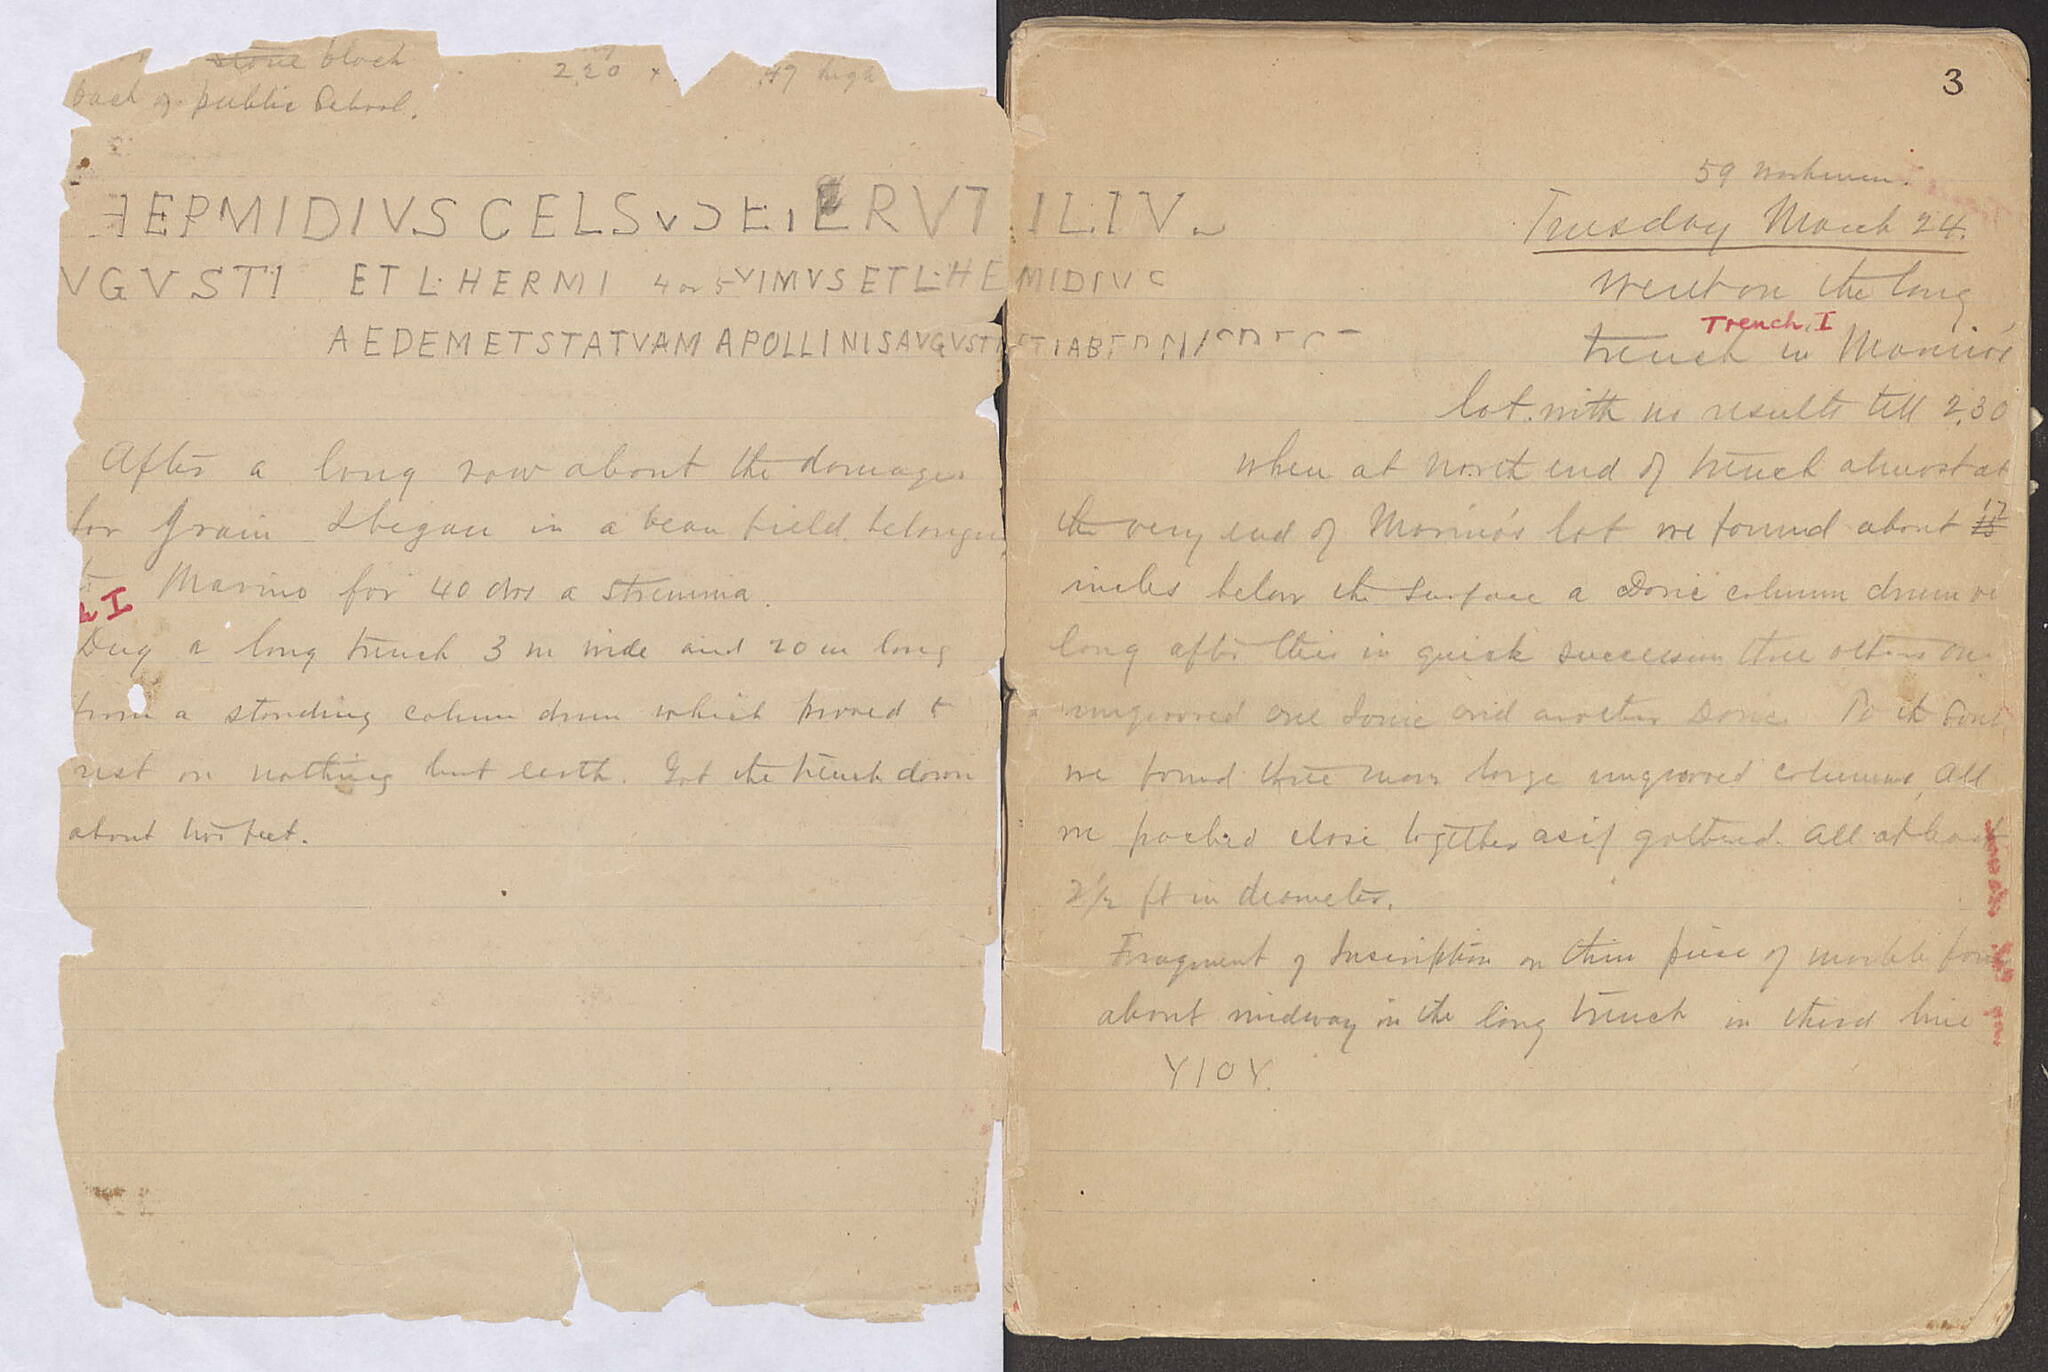 stone block
back of public School.
2.20 x .49 high
HERMIDIVS CELSVS ET RVTILIV
VGVSTI ET L·HERMI 4 or 5 VIMVS ET L·HE MIDIVC
AEDEM ET STATVAM APOLLINIS AVGVSTI ETIABE
After a long row about the damages
for grain I began in a bean field belonging
to Marino for 40 drs a stremma.
I
Dug a long trench 3 m wide and 20 m long
from a standing column drum which proved to
rest on nothing but earth. Got the trench down
about two feet.
3
59 workmen.
Tuesday March 24.
Went on the long
Trench I
trench in Marino's
lot with no results till 2.30
when at north end of trench almost at
the very end of Marino's lot we found about 18 17
inches below the surface a Doric column drum
long after this in quick succession three others one
ungrooved one Ionic and another Doric. To
we found three more large ungrooved columns, all
packed close together as if gathered. All at least
2 1/2 ft in diameter.
Fragment of Inscription on thin piece of marble found
about midway in the long trench in third line
YIOY.